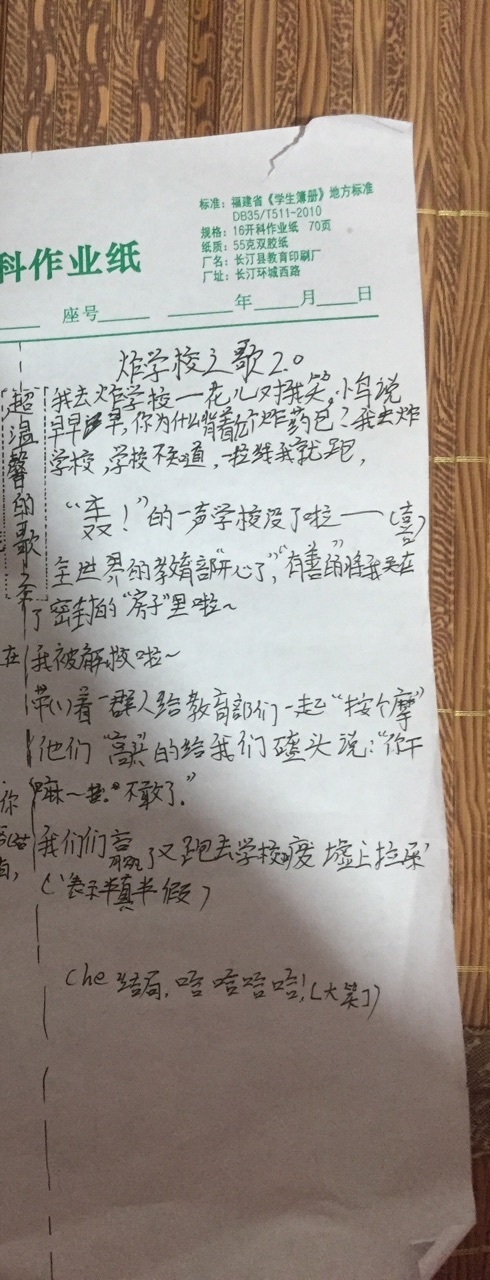 标准：福建省《学生簿册》地方标准
DB35/T511-2010
规格：16开科作业纸 70页
纸质：55克双胶纸
厂名：长汀县教育印刷厂
厂址：长汀环城西路
科作业纸
座号 年 月 日
炸学校之歌2.0
超温馨的歌
我去炸学校一花儿对我笑，小鸟说
早早早，你为什么背着炸药包？我去炸
学校，学校不知道，一拉线我就跑，
“轰！”的一声学校没了啦——（喜）
全世界的教育部“开心了”，“有善”的将我关在
了密封的“房子”里啦~
在 我被解放啦~
带着一群人给教育部们一起“按个摩”
他们“高兴”的给我们磕头说：“你干
你 嘛~ 不敢了。”
我们们赢了又跑去学校废墟上拉屎
（表示半真半假）
（he结局，哈哈哈哈！（大笑））